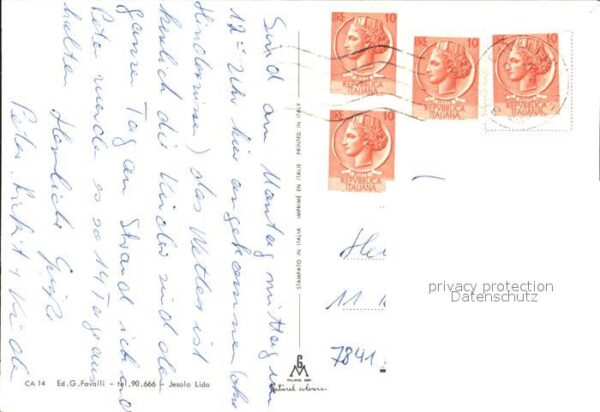 Sind am Montag mittag um
12 - Uhr hier angekommen (ohne
Hindernisse) das Wetter ist
herrlich die Kinder sind den
ganzen Tag am Strand ich und
Peter werden es so 14 Tage aus
halten Herzliche Grüße
Peter
LIRE 10
REPVBBLICA
ITALIANA
LIRE 10
REPVBBLICA
ITALIANA
LIRE 10
REPVBBLICA
ITALIANA
LIRE 10
REPVBBLICA
ITALIANA
STAMPATO IN ITALIA IMPRIMÉ EN ITALIE PRINTED IN ITALY
11
7841
privacy protection
Datenschutz
MILANO
Natural colours
CA 14 Ed. G. Favalli - tel. 90.666 - Jesolo Lido